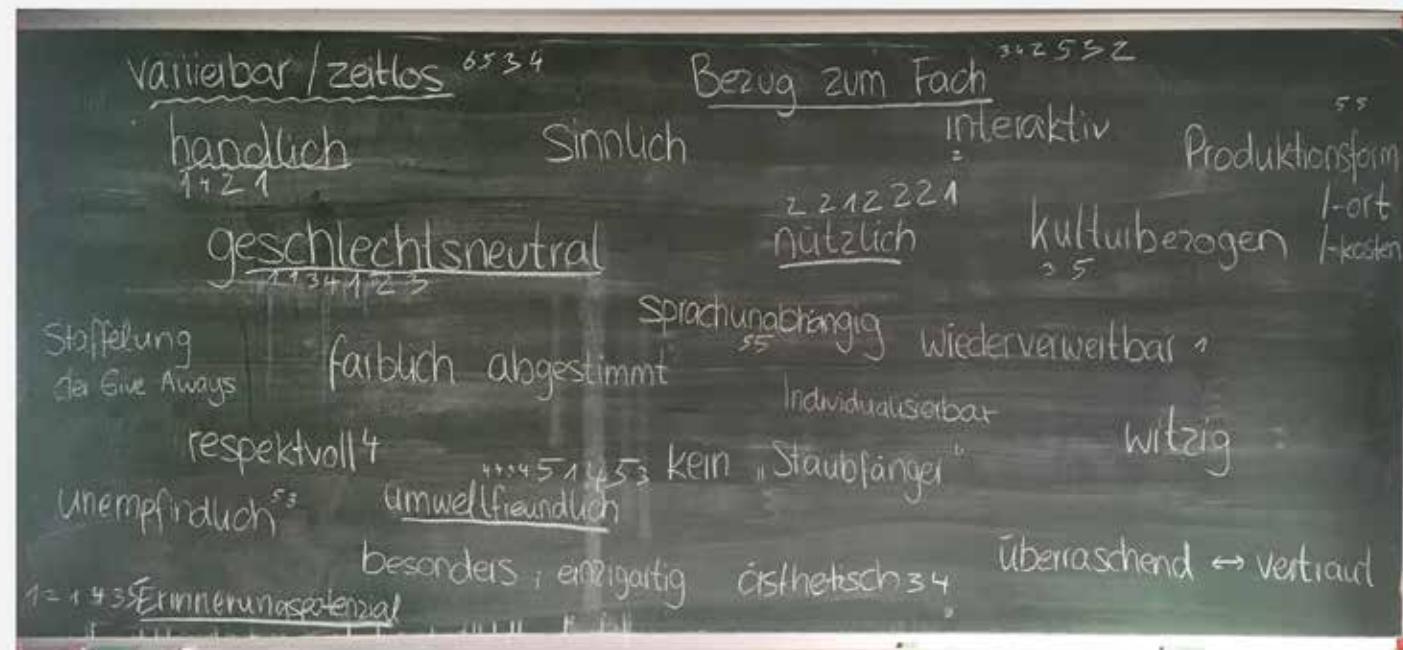 variierbar / zeitlos 6534
Bezug zum Fach 342532
handlich
1421
Sinnlich
interaktiv
2
55
Produktionsform
/-ort
/-kosten
geschlechtsneutral
1134123
2212221
nützlich
kulturbezogen
35
Staffelung
der Give Aways
farblich abgestimmt
sprachunabhängig
55
wiederverwertbar 1
Individualisierbar
respektvoll 4
51453
umweltfreundlich
kein „Staubfänger“
witzig
unempfindlich 53
besonders, einzigartig
ästhetisch 34
überraschend ↔ vertraut
Erinnerungspotenzial